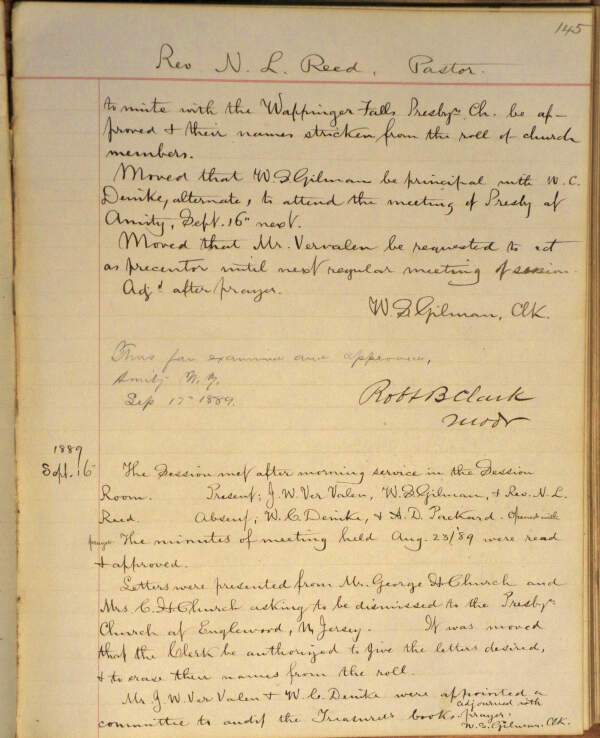 145
Rev N. L. Reed, Pastor.
to unite with the Wappinger Falls Presbyn Ch. be ap-
proved & their names stricken from the roll of church
members.
Moved that W S Gilman be principal with W. C.
Denike, alternate, to attend the meeting of Presby at
Amity, Sept. 16th next.
Moved that Mr. Vervalen be requested to act
as precentor until next regular meeting of session.
Adjd after prayer.
W. S. Gilman, Clk.
Thus far examined and approved,
Amity N. Y.
Sep 17 1889.
Robt B Clark
Modr
1889
Sept. 16
The Session met after morning service in the Session
Room. Present; J. W. Ver Valen, W. S. Gilman, & Rev. N. L.
Reed. Absent; W. C. Denike, & A. D. Packard. Opened with
prayer The minutes of meeting held Aug. 23/'89 were read
& approved.
Letters were presented from Mr. George H Church and
Mrs C. H Church asking to be dismissed to the Presbyn
Church at Englewood, N Jersey. It was moved
that the Clerk be authorized to give the letters desired,
& to erase their names from the roll.
Mr. J. W. Ver Valen & W. C. Denike were appointed a
committee to audit the Treasurers books. adjourned with
prayer.
W. S. Gilman, Clk.